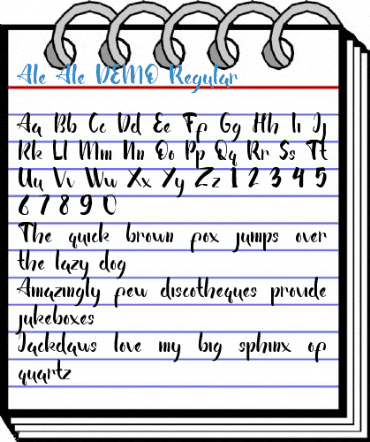 Ale Ale DEMO Regular
Aa Bb Cc Dd Ee Ff Gg Hh Ii Jj
Kk Ll Mm Nn Oo Pp Qq Rr Ss Tt
Uu Vv Ww Xx Yy Zz 1 2 3 4 5
6 7 8 9 0
The quick brown fox jumps over
the lazy dog
Amazingly few discotheques provide
jukeboxes
Jackdaws love my big sphinx of
quartz